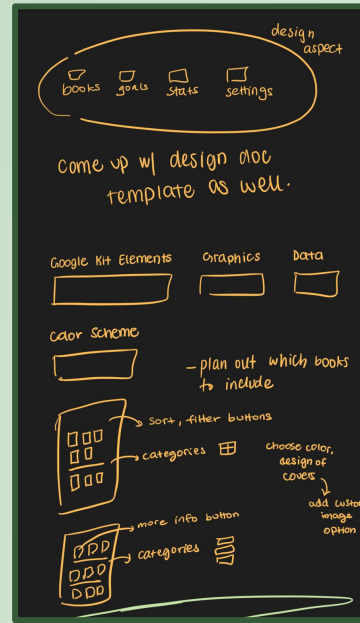 design
aspect
books goals stats settings
come up w/ design doc
template as well.
Google Kit Elements Graphics Data
color scheme
- plan out which books
to include
sort, filter buttons
categories
choose color,
design of
covers
add custom
image
option
more info button
categories